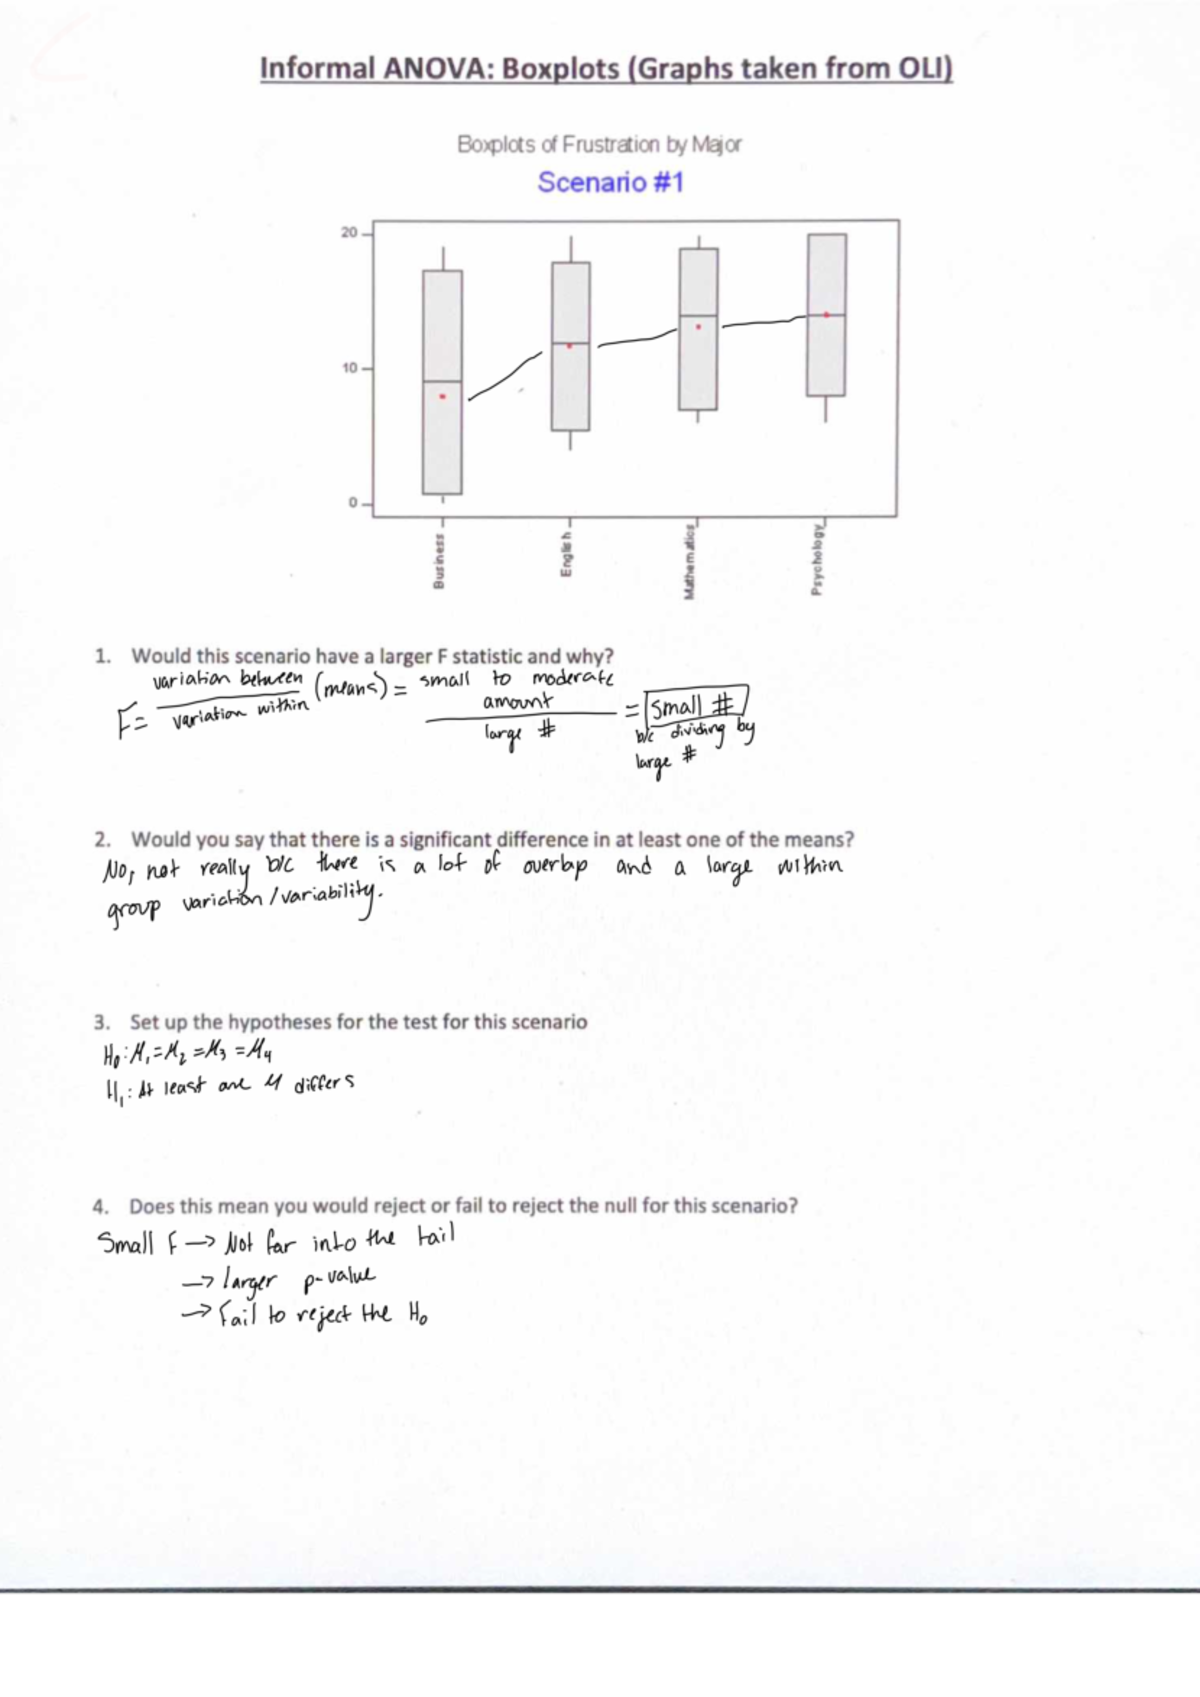 Informal ANOVA: Boxplots (Graphs taken from OLI)
Boxplots of Frustration by Major
Scenario #1
20
10
0
Business
English
Mathematics
Psychology
1. Would this scenario have a larger F statistic and why?
F = variation between / variation within (means) = small to moderate amount / large # = small #
b/c dividing by
large #
2. Would you say that there is a significant difference in at least one of the means?
No, not really b/c there is a lot of overlap and a large within
group variation/variability.
3. Set up the hypotheses for the test for this scenario
H₀: μ₁=μ₂=μ₃=μ₄
H₁: At least one μ differs
4. Does this mean you would reject or fail to reject the null for this scenario?
Small F → Not far into the tail
→ larger p-value
→ Fail to reject the H₀